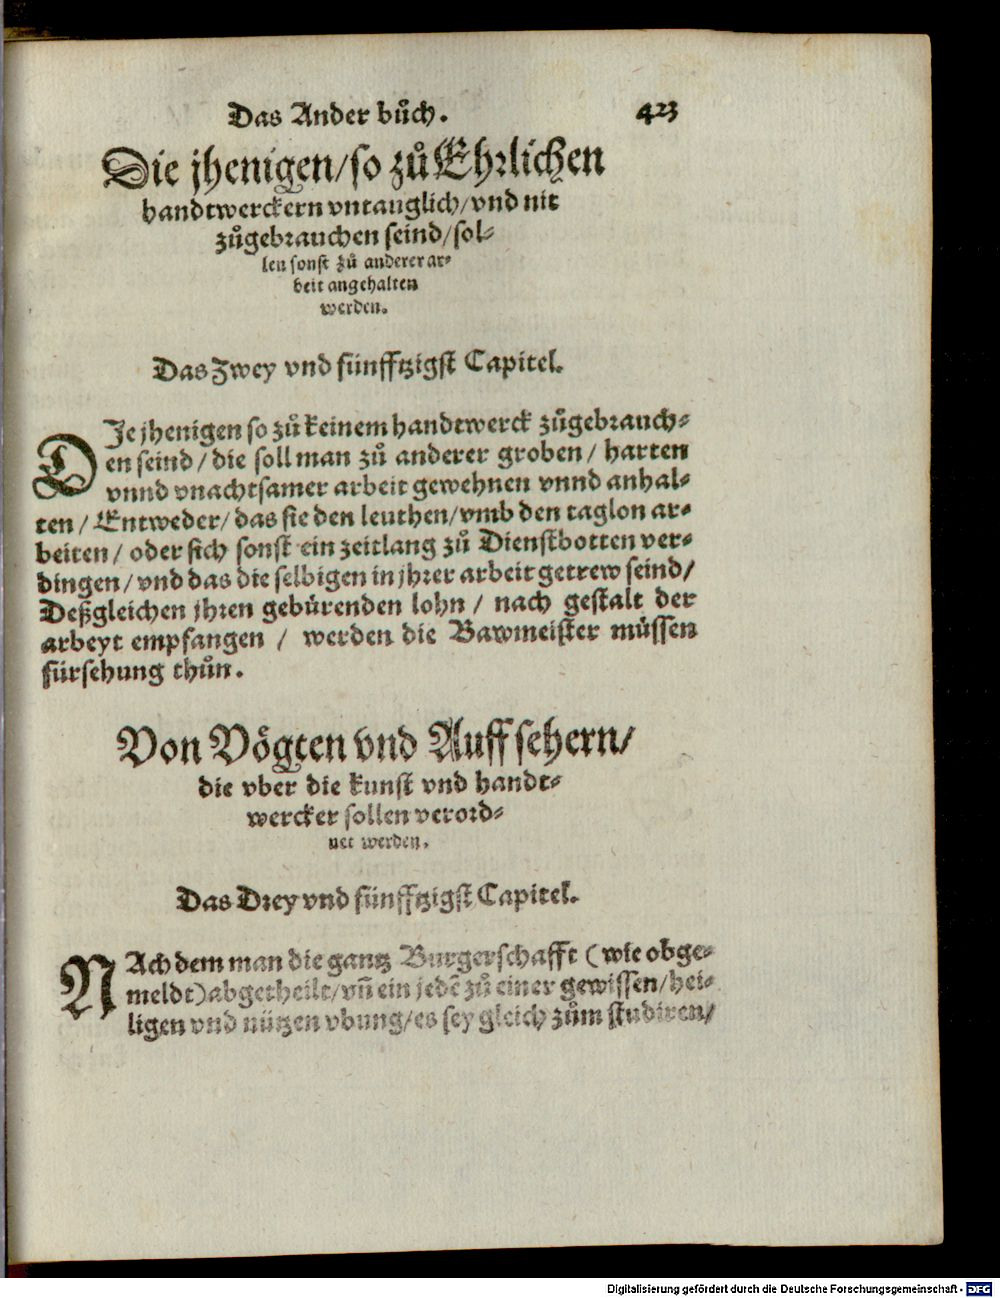 Das Ander bůch. 423
Die jhenigen/so zů Ehrlichen
handtwerckern vntauglich/vnd nit
zůgebrauchen seind/sol⸗
len sonst zů anderer ar⸗
beit angehalten
werden.
Das Zwey vnd fünfftzigst Capitel.
DJe jhenigen so zů keinem handtwerck zůgebrauch⸗
en seind/die soll man zů anderer groben/ harten
vnnd vnachtsamer arbeit gewehnen vnnd anhal⸗
ten/Entweder/das sie den leuthen/vmb den taglon ar⸗
beiten/oder sich sonst ein zeitlang zů Dienstbotten ver⸗
dingen/vnd das die selbigen in jhrer arbeit getrew seind/
Deßgleichen jhren gebürenden lohn / nach gestalt der
arbeyt empfangen / werden die Bawmeister müssen
fürsehung thůn.
Von Vögten vnd Auffsehern/
die vber die kunst vnd handt⸗
wercker sollen verord⸗
net werden.
Das Drey vnd fünfftzigst Capitel.
NAch dem man die gantz Burgerschafft (wie obge⸗
meldt)abgetheilt/vñ ein jedē zů einer gewissen/hei⸗
ligen vnd nützen vbung/es sey gleich zům studiren/
Digitalisierung gefördert durch die Deutsche Forschungsgemeinschaft - DFG